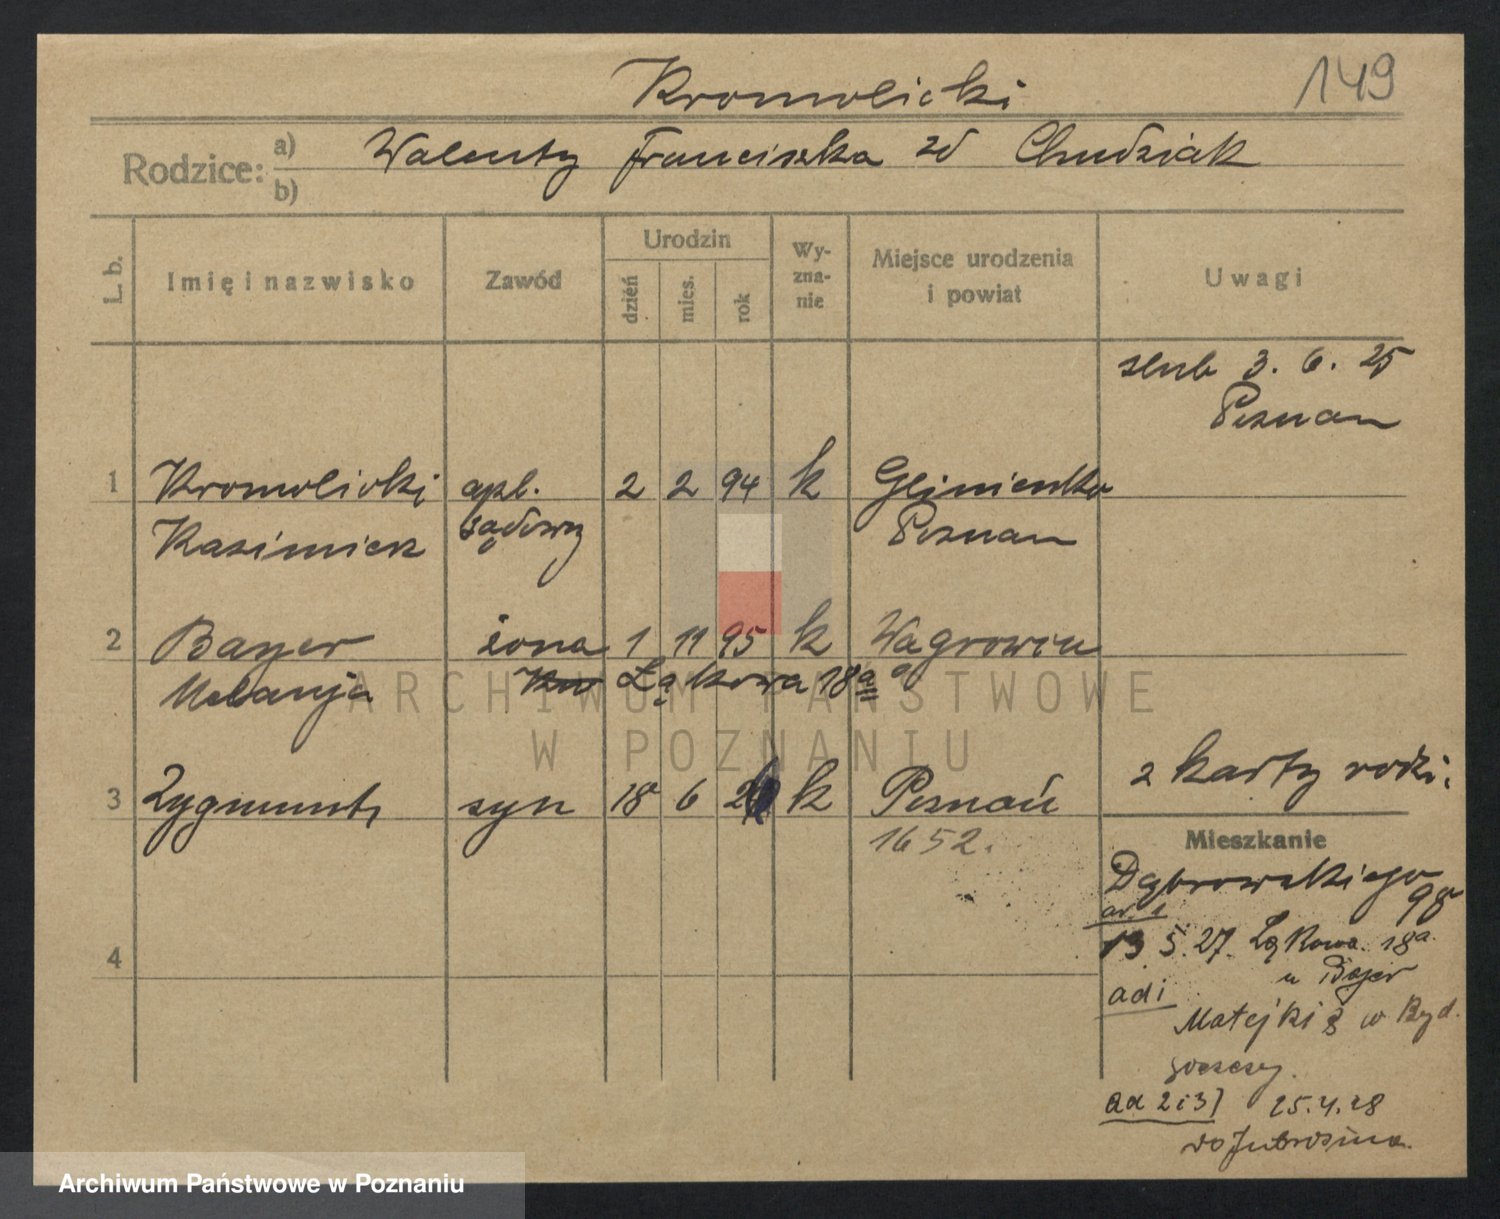 149
Kromolicki
Rodzice: a) b) Walenty Franciszka zd Chudziak
L. b. Imię i nazwisko Zawód Urodzin dzień mies. rok Wy-zna-nie Miejsce urodzenia i powiat Uwagi
slub 3. 6. 25
Poznan
1 Kromolicki apl. 2 2 94 k Glinienko
Kazimierz sądowy Poznan
2 Bayer żona 1 11 95 k Wągrowiec
Melanja Łąkowa 18a
2 karty rodzi.
3 Zygmunt syn 18 6 k Poznań
1652.
Mieszkanie
Dąbrowskiego
98
13 5. 27. Łąkowa 18a.
u Bajer
4
ad i
Matejki 8 w Byd.
goszczy.
ad 2 i 3) 25.4.28
do Jutrosina.
ARCHIWUM PAŃSTWOWE
W POZNANIU
Archiwum Państwowe w Poznaniu